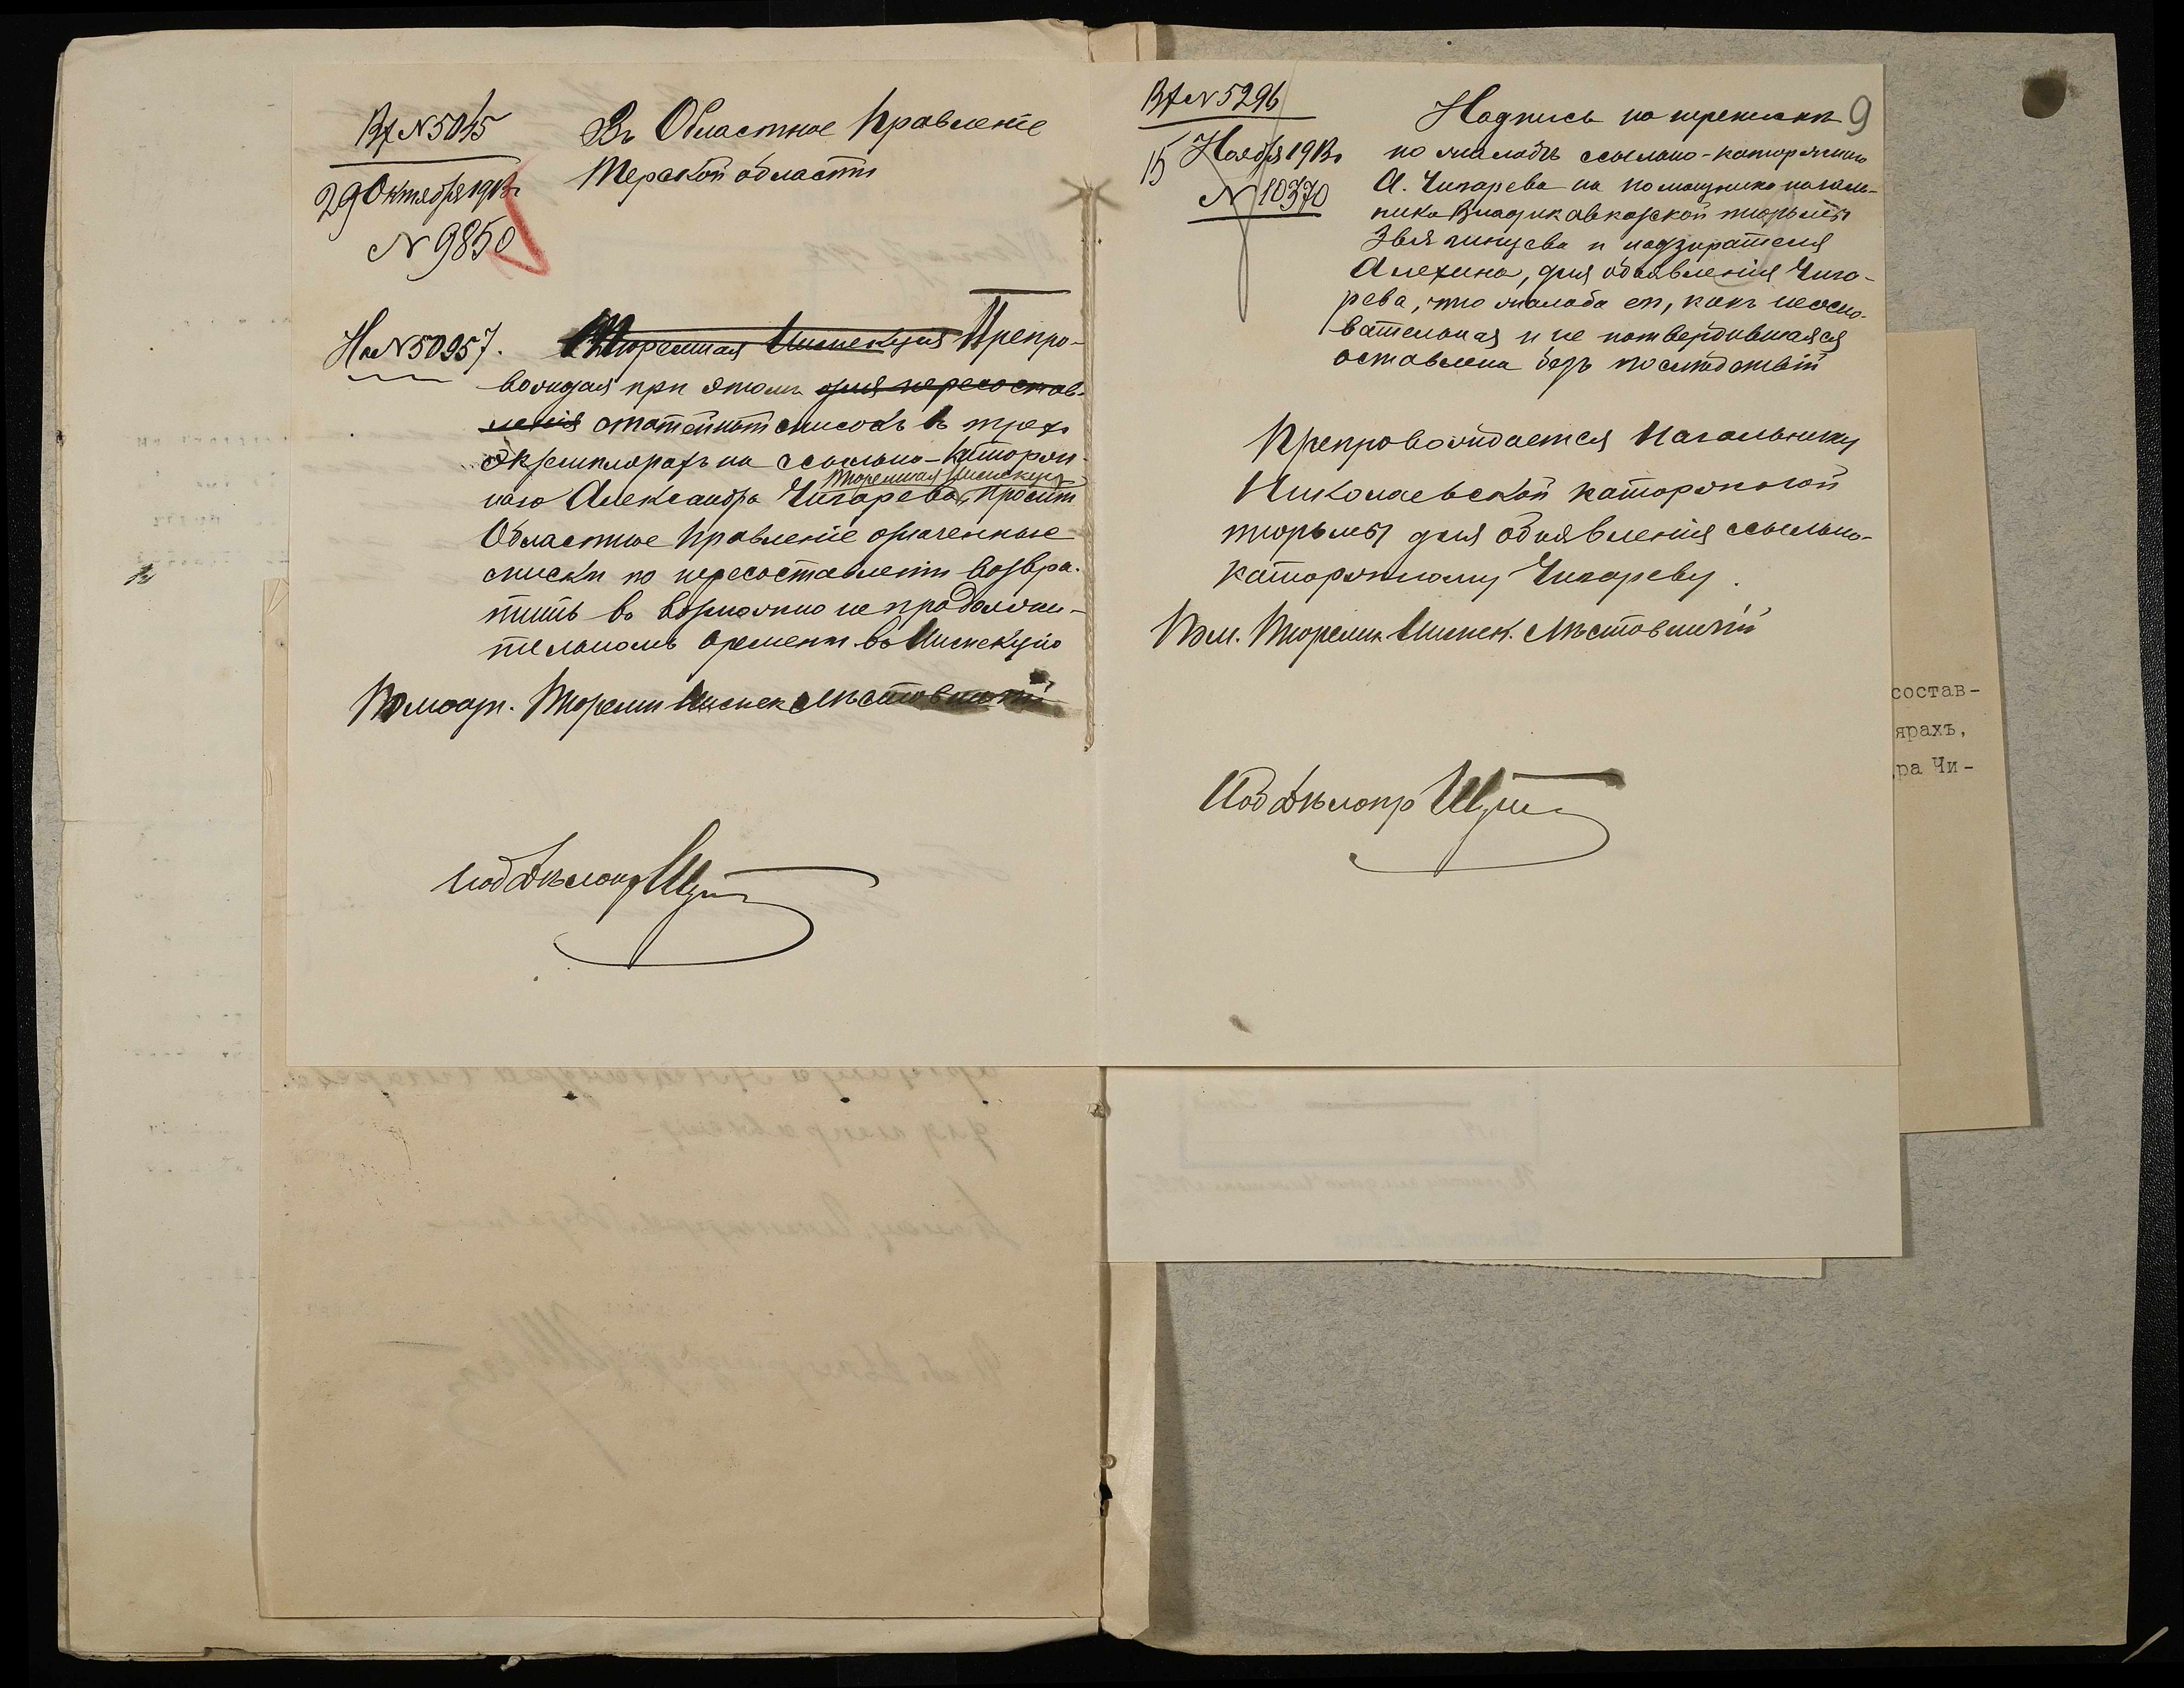 Вх N 5045
29 Октября 1913г
N 9850
Въ Областное Правленіе
Терской области
На N 50957.
Тюремная Инспекція Препро-
вождая при этомъ для пересостав-
ленія статейный списокъ въ трехъ
экземплярахъ на ссыльно-каторж-
Тюремная Инспекція
наго Александра Чигарева, проситъ
Областное Правленіе означенные
списки по пересоставленіи возвра-
тить въ возможно непродолжи-
тельномъ времени въ Инспекцію
Помощ. Тюремн Инспек Мѣстовскій
Вх N 5296
15 Ноября 1913г
N 10370
9
Надпись на перепискѣ
по жалобѣ ссыльно-каторжнаго
А. Чигарева на помощника началь-
ника Владикавказской тюрьмы
и надзирателя
Алехина, для объявленія Чига-
рева, что жалоба его, какъ неосно-
вательная и не подтвердившаяся
оставлена безъ послѣдствій
Препровождается Начальнику
Николаевской каторжной
тюрьмы для объявленія ссыльно-
каторжному Чигареву.
Пом. Тюремн. Инспек. Мѣстовскій
состав-
ярахъ,
ра Чи-